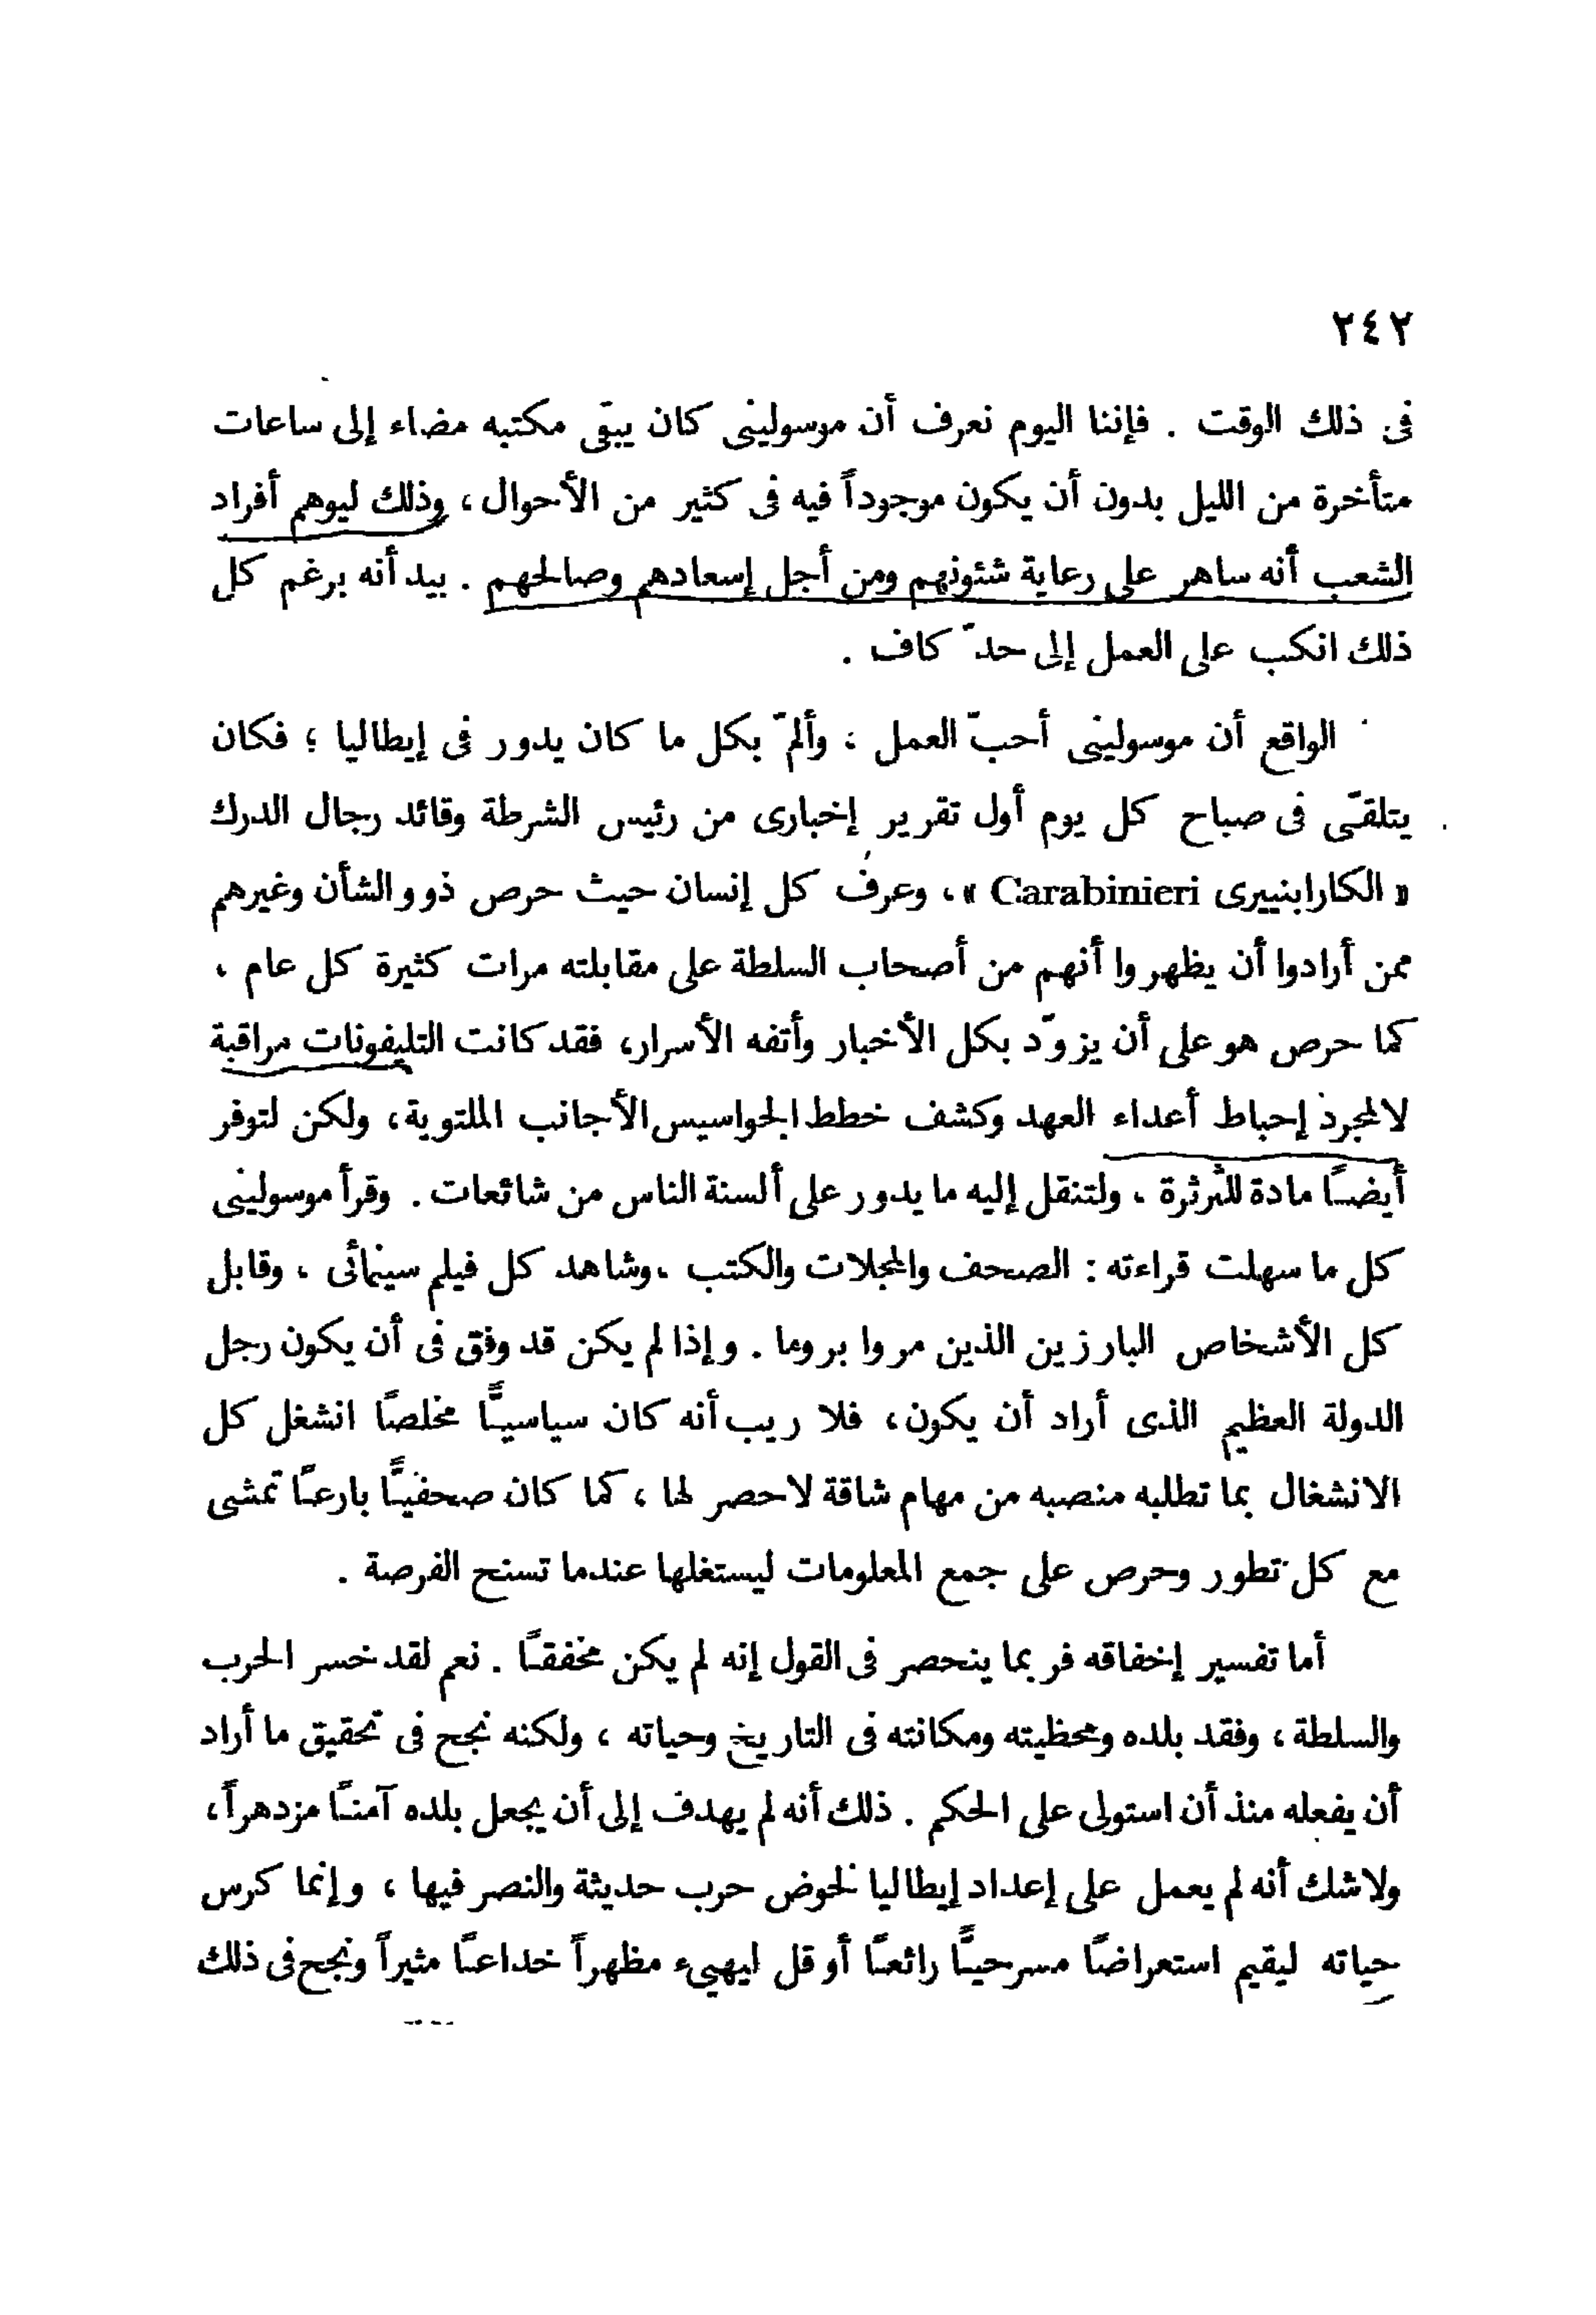 ٢٤٢
فى ذلك الوقت . فإننا اليوم نعرف أن موسولينى كان يبقى مكتبه مضاء إلى ساعات
متأخرة من الليل بدون أن يكون موجوداً فيه فى كثير من الأحوال ، وذلك ليوهم أفراد
الشعب أنه ساهر على رعاية شئونهم ومن أجل إسعادهم وصالحهم . بيد أنه برغم كل
ذلك انكب على العمل إلى حدّ كاف .
الواقع أن موسولينى أحبّ العمل ، وألمّ بكل ما كان يدور فى إيطاليا ؛ فكان
يتلقّى فى صباح كل يوم أول تقرير إخبارى من رئيس الشرطة وقائد رجال الدرك
« الكارابنييرى Carabinieri » ، وعرف كل إنسان حيث حرص ذوو الشأن وغيرهم
ممن أرادوا أن يظهروا أنهم من أصحاب السلطة على مقابلته مرات كثيرة كل عام ،
كما حرص هو على أن يزوّد بكل الأخبار وأتفه الأسرار، فقد كانت التليفونات مراقبة
لا لمجرد إحباط أعداء العهد وكشف خطط الجواسيس الأجانب الملتوية ، ولكن لتوفر
أيضًا مادة للثرثرة ، ولتنقل إليه ما يدور على ألسنة الناس من شائعات . وقرأ موسولينى
كل ما سهلت قراءته : الصحف والمجلات والكتب ، وشاهد كل فيلم سينمائى ، وقابل
كل الأشخاص البارزين الذين مروا بروما . وإذا لم يكن قد وفق فى أن يكون رجل
الدولة العظيم الذى أراد أن يكون ، فلا ريب أنه كان سياسيًّا مخلصًا انشغل كل
الانشغال بما تطلبه منصبه من مهام شاقة لا حصر لها ، كما كان صحفيًّا بارعًا تمشى
مع كل تطور وحرص على جمع المعلومات ليستغلها عندما تسنح الفرصة .
أما تفسير إخفاقه فربما ينحصر فى القول إنه لم يكن مخفقًا . نعم لقد خسر الحرب
والسلطة ، وفقد بلده ومحظيته ومكانته فى التاريخ وحياته ، ولكنه نجح فى تحقيق ما أراد
أن يفعله منذ أن استولى على الحكم . ذلك أنه لم يهدف إلى أن يجعل بلده آمنًا مزدهراً ،
ولا شك أنه لم يعمل على إعداد إيطاليا لخوض حرب حديثة والنصر فيها ، وإنما كرس
حياته ليقيم استعراضًا مسرحيًّا رائعًا أو قل ليهيىء مظهراً خداعًا مثيراً ونجح فى ذلك